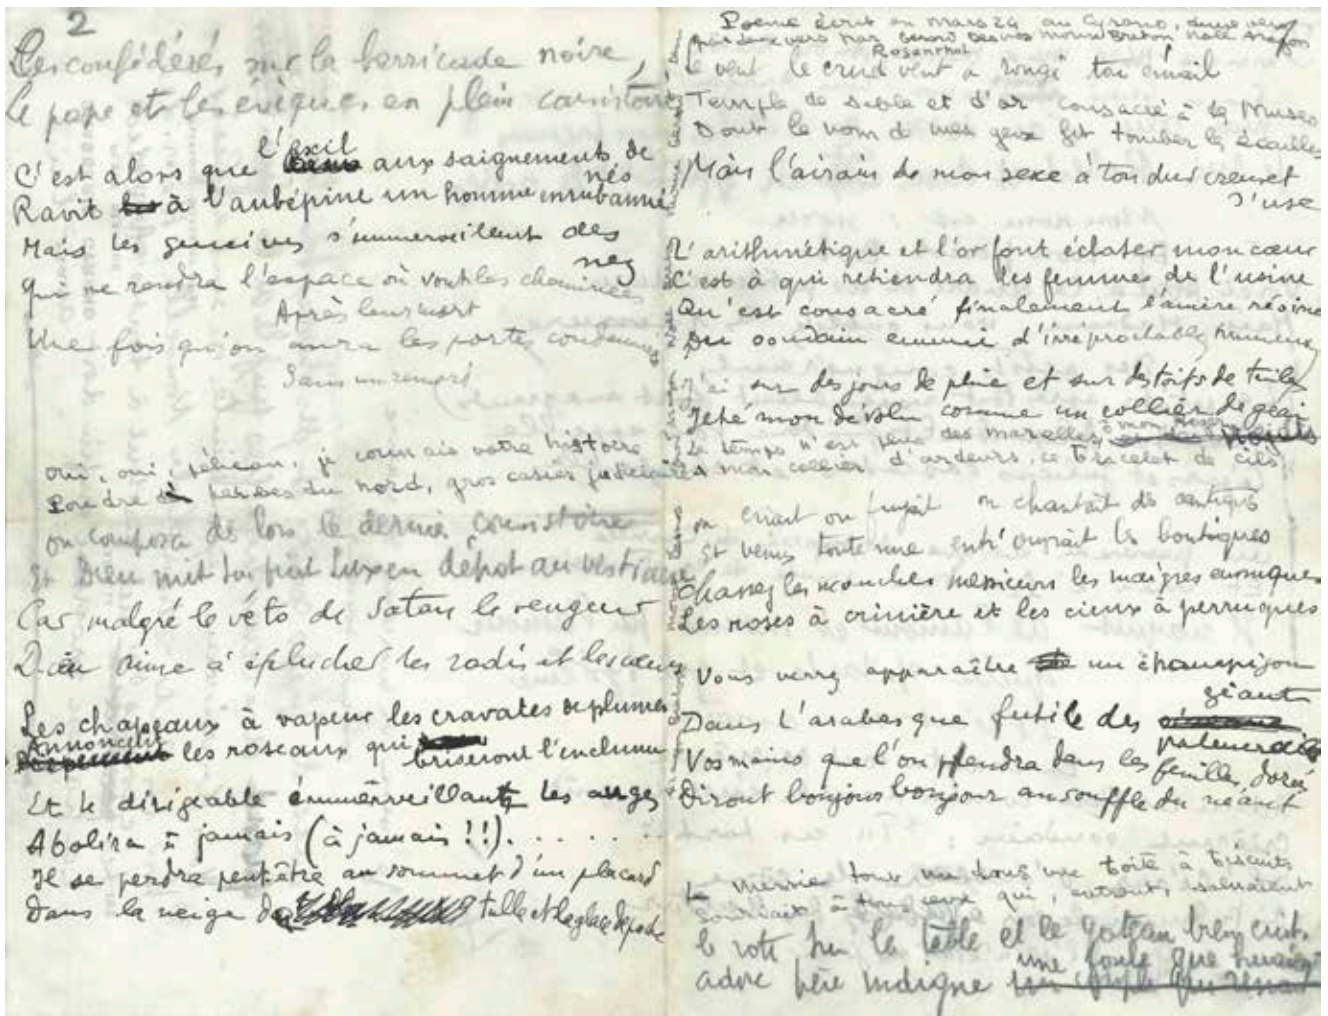 2
Les confédérés sur la barricade noire,
Le pape et les évèques en plein consistoire
C'est alors que l'exil aux saignements de nés
Ravit à l'aubépine un homme enrubanné
Mais les gencives s'émerveillent des nez
Qui ne rendra l'espace où vont les cheminées
Après leur mort
Une fois qu'on aura les portes condamnées
Sans un remord
oui, oui, pélican, je connais votre histoire
Poudre de herbes du nord, gros casier judiciaire
on composa de lors le dernier consistoire
Et Dieu mit son fiat Lux en dépot au vestiaire
Car malgré le véto de Satan le vengeur
Dieu aime à éplucher les radis et les cœurs
Les chapeaux à vapeur les cravates de plumes
Annoncent les roseaux qui briseront l'enclume
Et le dirigeable émmerveillant les anges
Abolira à jamais (à jamais !!). . . . . .
Il se perdra peut-être au sommet d'un placard
Dans la neige de tulle et la glace de poche
Poème écrit en mars 24 au Cyrano, deux vers
par deux vers par Desnos Breton Noll Aragon
Rosenthal
Le vent le crud vent a rongé ton émail
Temple de sable et d'or consacré à la Muse
Dont le nom de mes yeux fit tomber les écailles
Mais l'airain de mon sexe à ton dur creuset s'use
L'arithmétique et l'or font éclater mon cœur
C'est à qui retiendra les femmes de l'usine
Qu'est consacré finalement l'amère résine
Du soudain ennui d'irréprochables
J'ai sur des jours de pluie et sur des toits de tuiles
Jeté mon dévolu comme un collier de geai
Le temps n'est plus des marelles ô mon
A mon collier d'ardeurs, ce bracelet de cils
on criait on fuyait on chantait des cantiques
Et venus toute nue entr'ouvrait les boutiques
Chassez les mouches messieurs les maigres eunuques
Les roses à crinière et les cieux à perruques
Vous verrez apparaître un champignon géant
Dans l'arabesque futile des palmeraies
Vos mains que l'on prendra dans les feuilles dorées
Diront bonjour bonjour au souffle du néant
Le messie tout nu dans une boîte à biscuits
Souriait à tous ceux qui, entrants, saluaient
le rôti sur la table et le gateau bien cuit.
adore père indigne une foule que